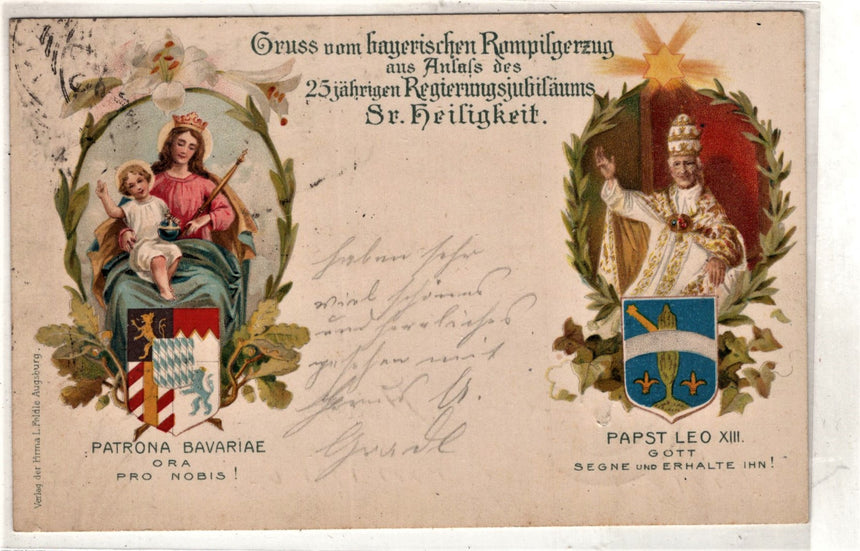 Gruss vom bayerischen Rompilgerzug
aus Anlass des
25jährigen Regierungsjubiläums
Sr. Heiligkeit.
haben sehr
viel schönes
und herrliches
gesehen mit
Gruss A.
Gradl
PATRONA BAVARIAE
ORA
PRO NOBIS!
PAPST LEO XIII.
GOTT
SEGNE UND ERHALTE IHN!
Verlag der Firma L. Feldle Augsburg.